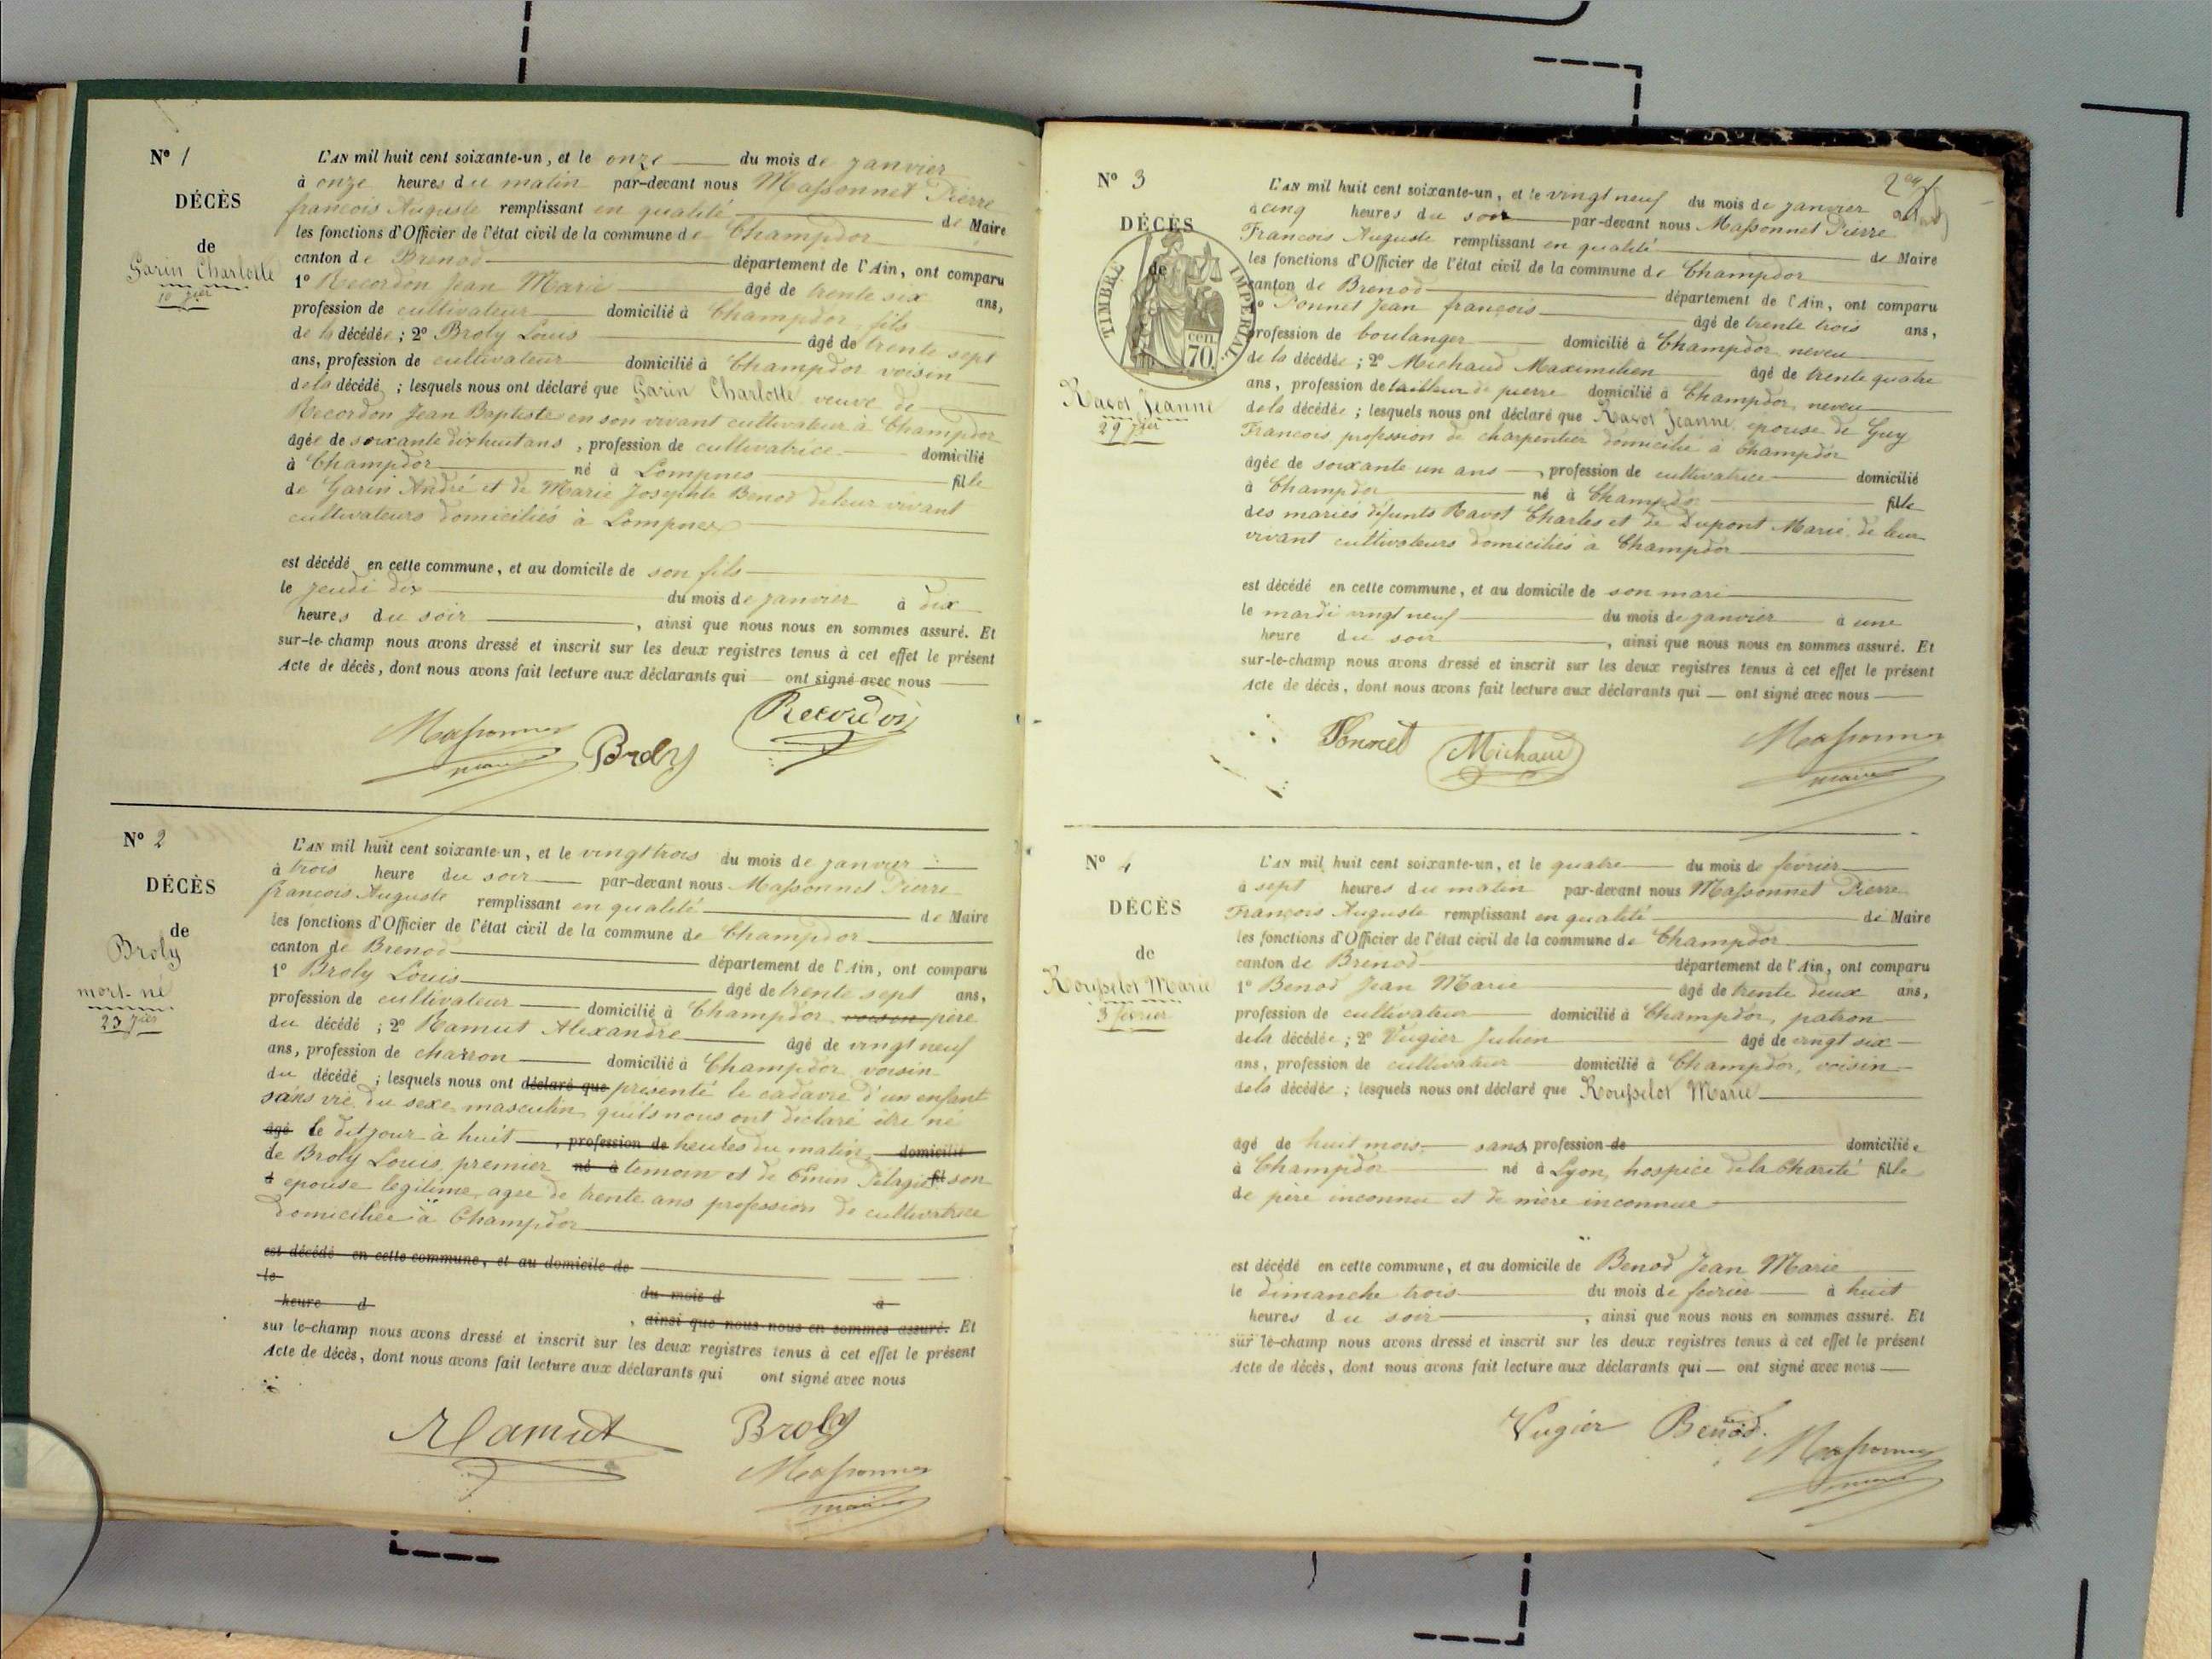 N° 1
DÉCÈS
de
Garin Charlotte
10 Jier
L'AN mil huit cent soixante-un, et le onze du mois de janvier
à onze heures du matin par-devant nous Massonnet Pierre
françois Auguste remplissant en qualité de Maire
les fonctions d'Officier de l'état civil de la commune de Champdor
canton de Brenod département de l'Ain, ont comparu
1° Recordon Jean Marie âgé de trente six ans,
profession de cultivateur domicilié à Champdor, fils
de la décédée ; 2° Broly Louis âgé de trente sept
ans, profession de cultivateur domicilié à Champdor voisin
de la décédé ; lesquels nous ont déclaré que Garin Charlotte veuve de
Recordon Jean Baptiste en son vivant cultivateur à Champdor
âgée de soixante dix huit ans, profession de cultivatrice domicilié
à Champdor né à Lompnes fille
de Garin André et de Marie Josephte Benod de leur vivant
cultivateurs domiciliés à Lompnes
est décédé en cette commune, et au domicile de son fils
le jeudi dix du mois de janvier à dix
heures du soir, ainsi que nous nous en sommes assuré. Et
sur-le-champ nous avons dressé et inscrit sur les deux registres tenus à cet effet le présent
Acte de décès, dont nous avons fait lecture aux déclarants qui ont signé avec nous
Massonnet
maire
Broly
Recordon
N° 2
DÉCÈS
de
Broly
mort-né
23 Jier
L'AN mil huit cent soixante-un, et le vingt trois du mois de janvier
à trois heure du soir par-devant nous Massonnet Pierre
françois Auguste remplissant en qualité de Maire
les fonctions d'Officier de l'état civil de la commune de Champdor
canton de Brenod département de l'Ain, ont comparu
1° Broly Louis âgé de trente sept ans,
profession de cultivateur domicilié à Champdor voison père
du décédé ; 2° Ramut Alexandre âgé de vingt neuf
ans, profession de charron domicilié à Champdor voisin
du décédé ; lesquels nous ont déclaré que présenté le cadavre d'un enfant
sans vie du sexe masculin qu'ils nous ont déclaré être né
âgé le dit jour à huit, profession de heures du matin domicilié
de Broly Louis, premier né à temoin et de Emin Pélagie fil son
à epouse legitime, agee de trente ans profession de cultivatrice
domiciliée à Champdor
est décédé en cette commune, et au domicile de
le
du mois d à
heure d
, ainsi que nous nous en sommes assuré. Et
sur le-champ nous avons dressé et inscrit sur les deux registres tenus à cet effet le présent
Acte de décès, dont nous avons fait lecture aux déclarants qui ont signé avec nous
Ramut
Broly
Massonnet
maire
N° 3
DÉCÈS
de
TIMBRE IMPÉRIAL
70 cen.
Ravot Jeanne
29 Jier
L'AN mil huit cent soixante-un, et le vingt neuf du mois de janvier
à cinq heures du soir par-devant nous Massonnet Pierre
Francois Auguste remplissant en qualité de Maire
les fonctions d'Officier de l'état civil de la commune de Champdor
canton de Brenod département de l'Ain, ont comparu
1° Ponnet Jean françois âgé de trente trois ans,
profession de boulanger domicilié à Champdor neveu
de la décédée ; 2° Michaud Maximilien âgé de trente quatre
ans, profession de tailleur de pierre domicilié à Champdor, neveu
de la décédée ; lesquels nous ont déclaré que Ravot Jeanne, epouse de Guy
Francois, profession de charpentier domicilié à Champdor
âgée de soixante un ans, profession de cultivatrice domicilié
à Champdor né à Champdor fille
des mariés défunts Ravot Charles et de Dupont Marie, de leur
vivant cultivateurs domiciliés à Champdor
est décédé en cette commune, et au domicile de son mari
le mardi vingt neuf du mois de janvier à une
heure du soir, ainsi que nous nous en sommes assuré. Et
sur-le-champ nous avons dressé et inscrit sur les deux registres tenus à cet effet le présent
Acte de décès, dont nous avons fait lecture aux déclarants qui ont signé avec nous
Ponnet
Michaud
Massonnet
maire
N° 4
DÉCÈS
de
Rousselot Marie
3 fevrier
L'AN mil huit cent soixante-un, et le quatre du mois de février
à sept heures du matin par-devant nous Massonnet Pierre
François Auguste remplissant en qualité de Maire
les fonctions d'Officier de l'état civil de la commune de Champdor
canton de Brenod département de l'Ain, ont comparu
1° Benod Jean Marie âgé de trente deux ans,
profession de cultivateur domicilié à Champdor, patron
de la décédée ; 2° Vugier Julien âgé de vingt six
ans, profession de cultivateur domicilié à Champdor, voisin
de la décédée ; lesquels nous ont déclaré que Rousselot Marie
âgé de huit mois, sans profession de domiciliée
à Champdor né à Lyon, hospice de la Charité fille
de père inconnu et de mère inconnue
est décédé en cette commune, et au domicile de Benod Jean Marie
le dimanche trois du mois de fevrier à huit
heures du soir, ainsi que nous nous en sommes assuré. Et
sur le-champ nous avons dressé et inscrit sur les deux registres tenus à cet effet le présent
Acte de décès, dont nous avons fait lecture aux déclarants qui ont signé avec nous
Vugier
Benod
Massonnet
maire